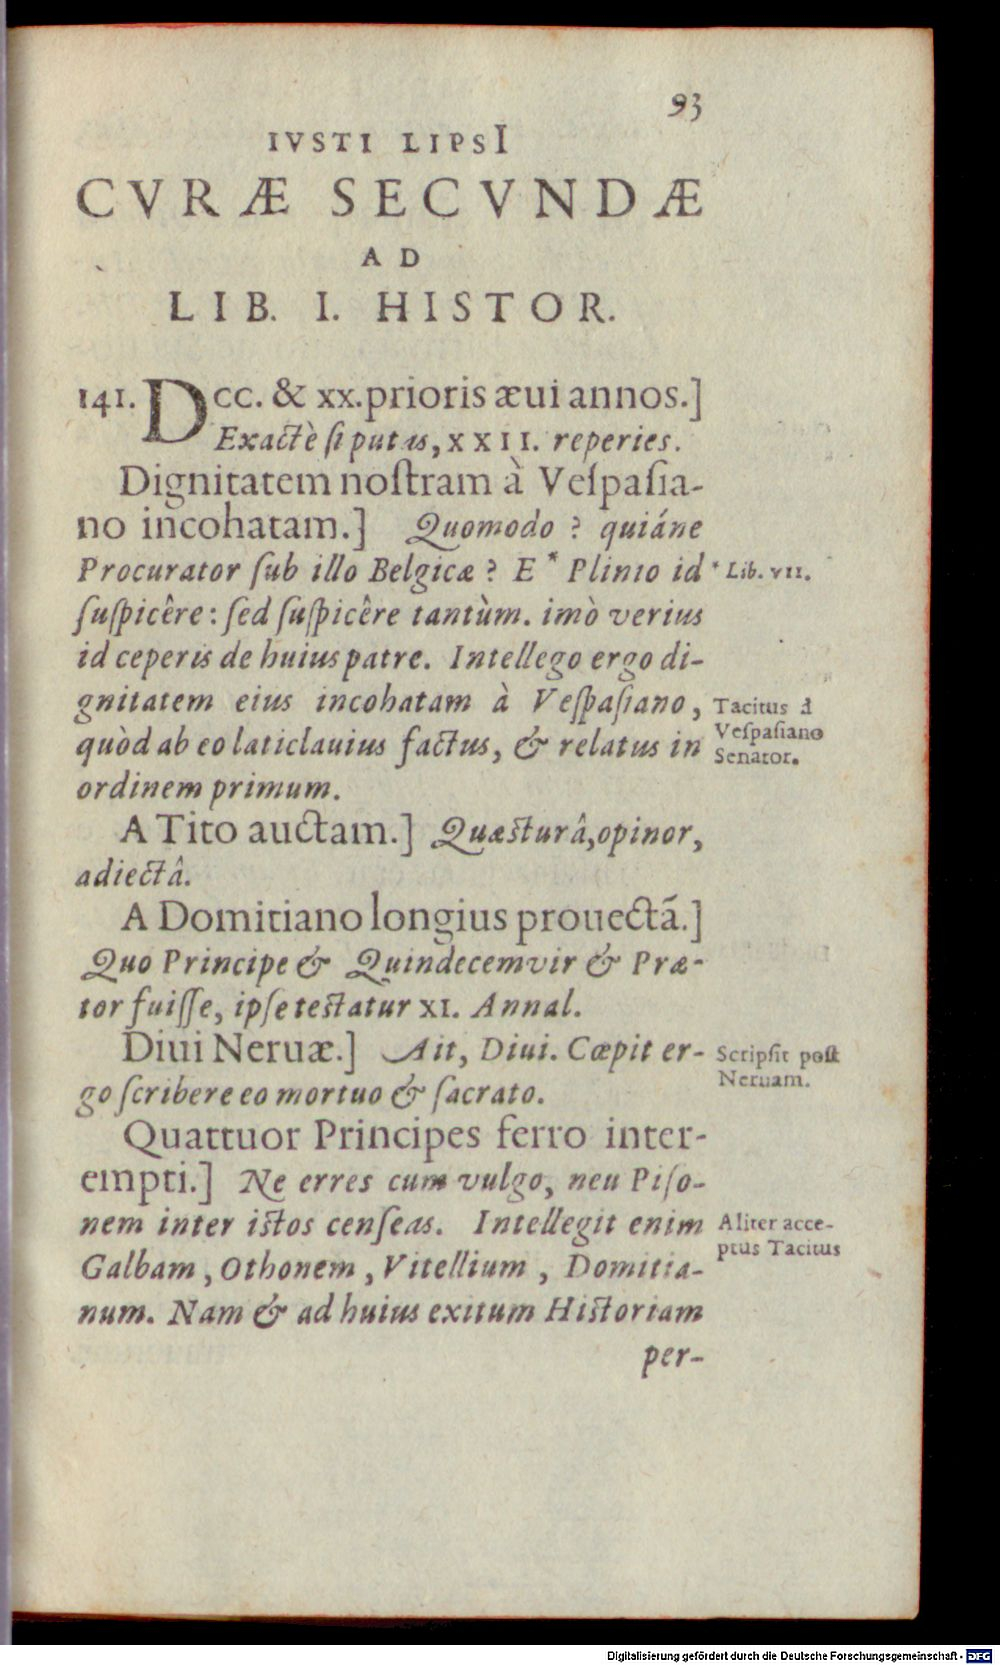 93
IVSTI LIPSI
CVRÆ SECVNDÆ
AD
LIB. I. HISTOR.
141. Dcc. & xx. prioris æui annos.]
Exactè si putas, XXII. reperies.
Dignitatem nostram à Vespasia-
no incohatam.] Quomodo? quiáne
Procurator sub illo Belgicæ? E * Plinio id
* Lib. VII.
suspicêre: sed suspicêre tantùm. imò verius
id ceperis de huius patre. Intellego ergo di-
gnitatem eius incohatam à Vespasiano,
quòd ab eo laticlauius factus, & relatus in
ordinem primum.
Tacitus à
Vespasiano
Senator.
A Tito auctam.] Quæsturâ, opinor,
adiectâ.
A Domitiano longius prouectã.]
Quo Principe & Quindecemvir & Præ-
tor fuisse, ipse testatur XI. Annal.
Diui Neruæ.] Ait, Diui. Cœpit er-
go scribere eo mortuo & sacrato.
Scripsit post
Neruam.
Quattuor Principes ferro inter-
empti.] Ne erres cum vulgo, neu Piso-
nem inter istos censeas. Intellegit enim
Galbam, Othonem, Vitellium, Domitia-
num. Nam & ad huius exitum Historiam
Aliter acce-
ptus Tacitus
per-
Digitalisierung gefördert durch die Deutsche Forschungsgemeinschaft - DFG